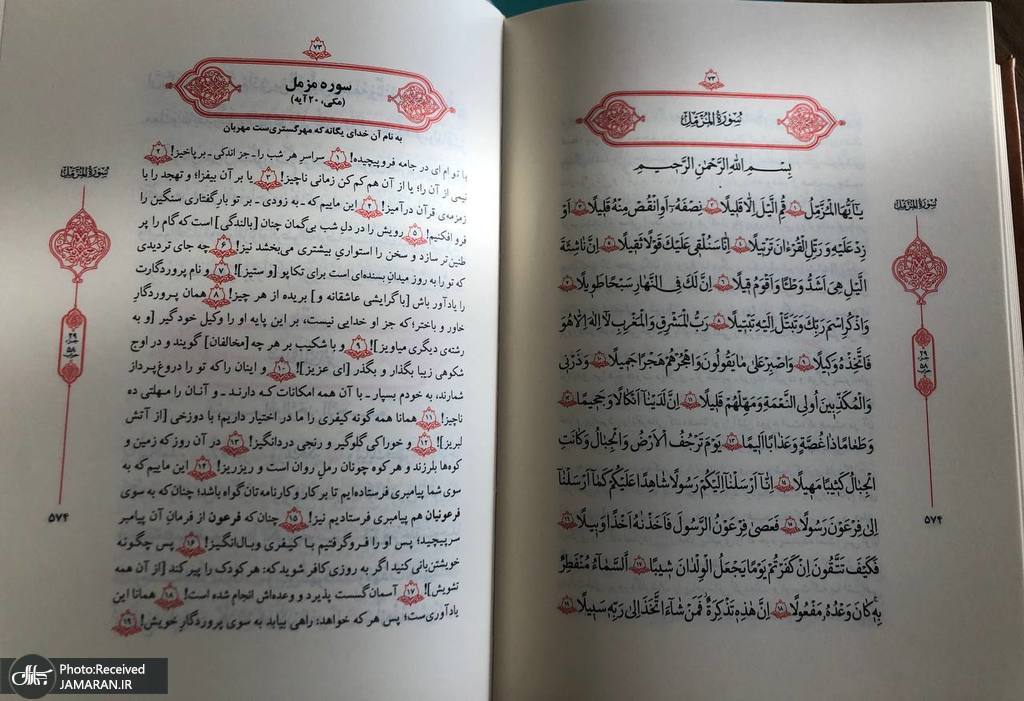 ۷۳
سُورَةُ الْمُزَّمِّلِ
بِسْمِ اللهِ الرَّحْمٰنِ الرَّحِيمِ
يَآأَيُّهَا الْمُزَّمِّلُ ۱ قُمِ الَّيْلَ اِلَّا قَلِيلًا ۲ نِصْفَهُ، أَوِ انْقُصْ مِنْهُ قَلِيلًا ۳ أَوْ
زِدْ عَلَيْهِ وَ رَتِّلِ الْقُرْءَانَ تَرْتِيلًا ۴ اِنَّا سَنُلْقِي عَلَيْكَ قَوْلًا ثَقِيلًا ۵ اِنَّ نَاشِئَةَ
الَّيْلِ هِيَ أَشَدُّ وَطْئًا وَ أَقْوَمُ قِيلًا ۶ اِنَّ لَكَ فِي النَّهَارِ سَبْحًا طَوِيلًا ۷
وَاذْكُرِ اسْمَ رَبِّكَ وَ تَبَتَّلْ اِلَيْهِ تَبْتِيلًا ۸ رَبُّ الْمَشْرِقِ وَالْمَغْرِبِ لَآ اِلٰهَ اِلَّا هُوَ
فَاتَّخِذْهُ وَكِيلًا ۹ وَاصْبِرْ عَلَىٰ مَا يَقُولُونَ وَاهْجُرْهُمْ هَجْرًا جَمِيلًا ۱۰ وَ ذَرْنِي
وَالْمُكَذِّبِينَ أُولِي النَّعْمَةِ وَ مَهِّلْهُمْ قَلِيلًا ۱۱ اِنَّ لَدَيْنَآ أَنْكَالًا وَ جَحِيمًا ۱۲
وَ طَعَامًا ذَا غُصَّةٍ وَ عَذَابًا أَلِيمًا ۱۳ يَوْمَ تَرْجُفُ الْأَرْضُ وَالْجِبَالُ وَ كَانَتِ
الْجِبَالُ كَثِيبًا مَهِيلًا ۱۴ اِنَّآ أَرْسَلْنَآ اِلَيْكُمْ رَسُولًا شَاهِدًا عَلَيْكُمْ كَمَآ أَرْسَلْنَآ
اِلَىٰ فِرْعَوْنَ رَسُولًا ۱۵ فَعَصَىٰ فِرْعَوْنُ الرَّسُولَ فَأَخَذْنَاهُ أَخْذًا وَبِيلًا ۱۶
فَكَيْفَ تَتَّقُونَ اِنْ كَفَرْتُمْ يَوْمًا يَجْعَلُ الْوِلْدَانَ شِيبًا ۱۷ أَلسَّمَآءُ مُنْفَطِرٌ
بِهِ، كَانَ وَعْدُهُ، مَفْعُولًا ۱۸ اِنَّ هٰذِهِ، تَذْكِرَةٌ فَمَنْ شَآءَ اتَّخَذَ اِلَىٰ رَبِّهِ، سَبِيلًا ۱۹
سُورَةُ الْمُزَّمِّلِ
۲۹
جزء
۵۸
حزب
۵۷۴
۷۳
سوره مزمل
(مکی، ۲۰ آیه)
به نام آن خدای یگانه که مهرگستری‌ست مهربان
با توام ای در جامه فروپیچیده! ۱ سراسرِ هر شب را ـ جز اندکی ـ بر پا خیز! ۲
نیمی از آن را؛ یا از آن هم کم کن زمانی ناچیز! ۳ یا بر آن بیفزا؛ و تهجد را با
زمزمه‌ی قرآن درآمیز! ۴ این ماییم که ـ به زودی ـ بر تو بارِ گفتاری سنگین را
فرو افکنیم! ۵ رویش را در دلِ شب بی‌گمان چنان [بالندگی] است که گام را پر
طنین‌تر سازد و سخن را استواری بیشتری می‌بخشد نیز! ۶ چه جای تردیدی
که تو را به روز میدانِ بسنده‌ای است برای تکاپو [و ستیز]! ۷ و نام پروردگارت
را یادآور باش [با گرایشی عاشقانه و] بریده از هر چیز! ۸ همان پروردگارِ
خاور و باختر؛ که جز او خدایی نیست، بر این پایه او را وکیل خود گیر [و به
رشته‌ی دیگری میاویز]! ۹ و با شکیب بر هر چه [مخالفان] گویند و در اوج
شکوهی زیبا بگذار و بگذر [ای عزیز]! ۱۰ و اینان را که تو را دروغ‌پرداز
شمارند، به خودم بسپار ـ با آن همه امکانات کـه دارنـد ـ و آنـان را مـهلتی ده
ناچیز! ۱۱ همانا همه گونه کیفری را ما در اختیار داریم؛ با دوزخی [از آتش
لبریز]! ۱۲ و خوراکی گلوگیر و رنجی دردانگیز! ۱۳ در آن روز که زمین و
کوه‌ها بلرزند و هر کوه چونان رملِ روان است و ریزریز! ۱۴ این ماییم که به
سوی شما پیامبری فرستاده‌ایم تا بر کار و کارنامه‌تان گواه باشد؛ چنان‌که به سوی
فرعونیان هم پیامبری فرستادیم نیز! ۱۵ چنان‌که فرعون از فرمانِ آن پیامبر
سرپیچید؛ پس او را فروگرفتیم بـا کـیفری وبـال‌انگیز! ۱۶ پس چگونه
خویشتن‌بانی کنید اگر به روزی کافر شوید که: هر کودک را پیر کند [از آن همه
تشویش]! ۱۷ آسمان گسست پذیرد و وعده‌اش انجام شده است! ۱۸ همانا این
یادآوری‌ست؛ پس هر که خواهد: راهی بیابد به سوی پروردگارِ خویش! ۱۹
سُورَةُ الْمُزَّمِّلِ
۲۹
جزء
۵۸
حزب
۵۷۴
Photo:Received
JAMARAN.IR